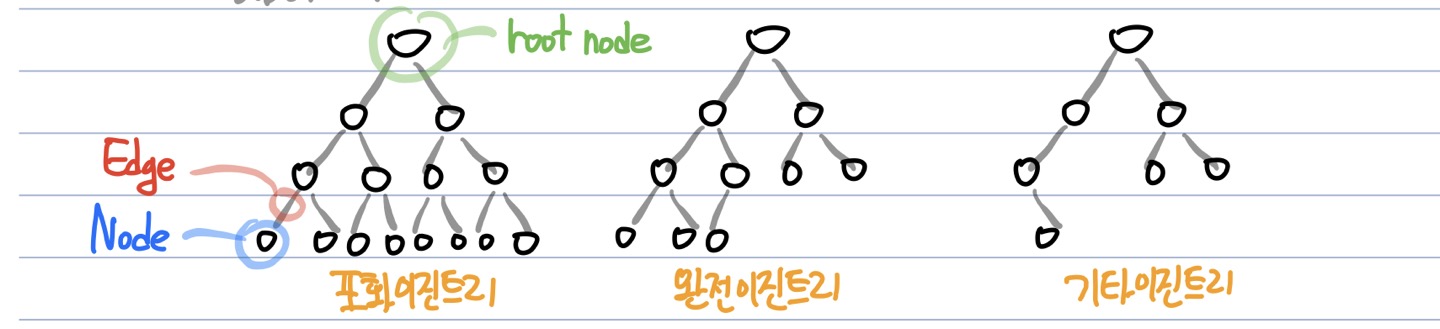 root node
Edge
Node
포화이진트리
완전이진트리
기타이진트리